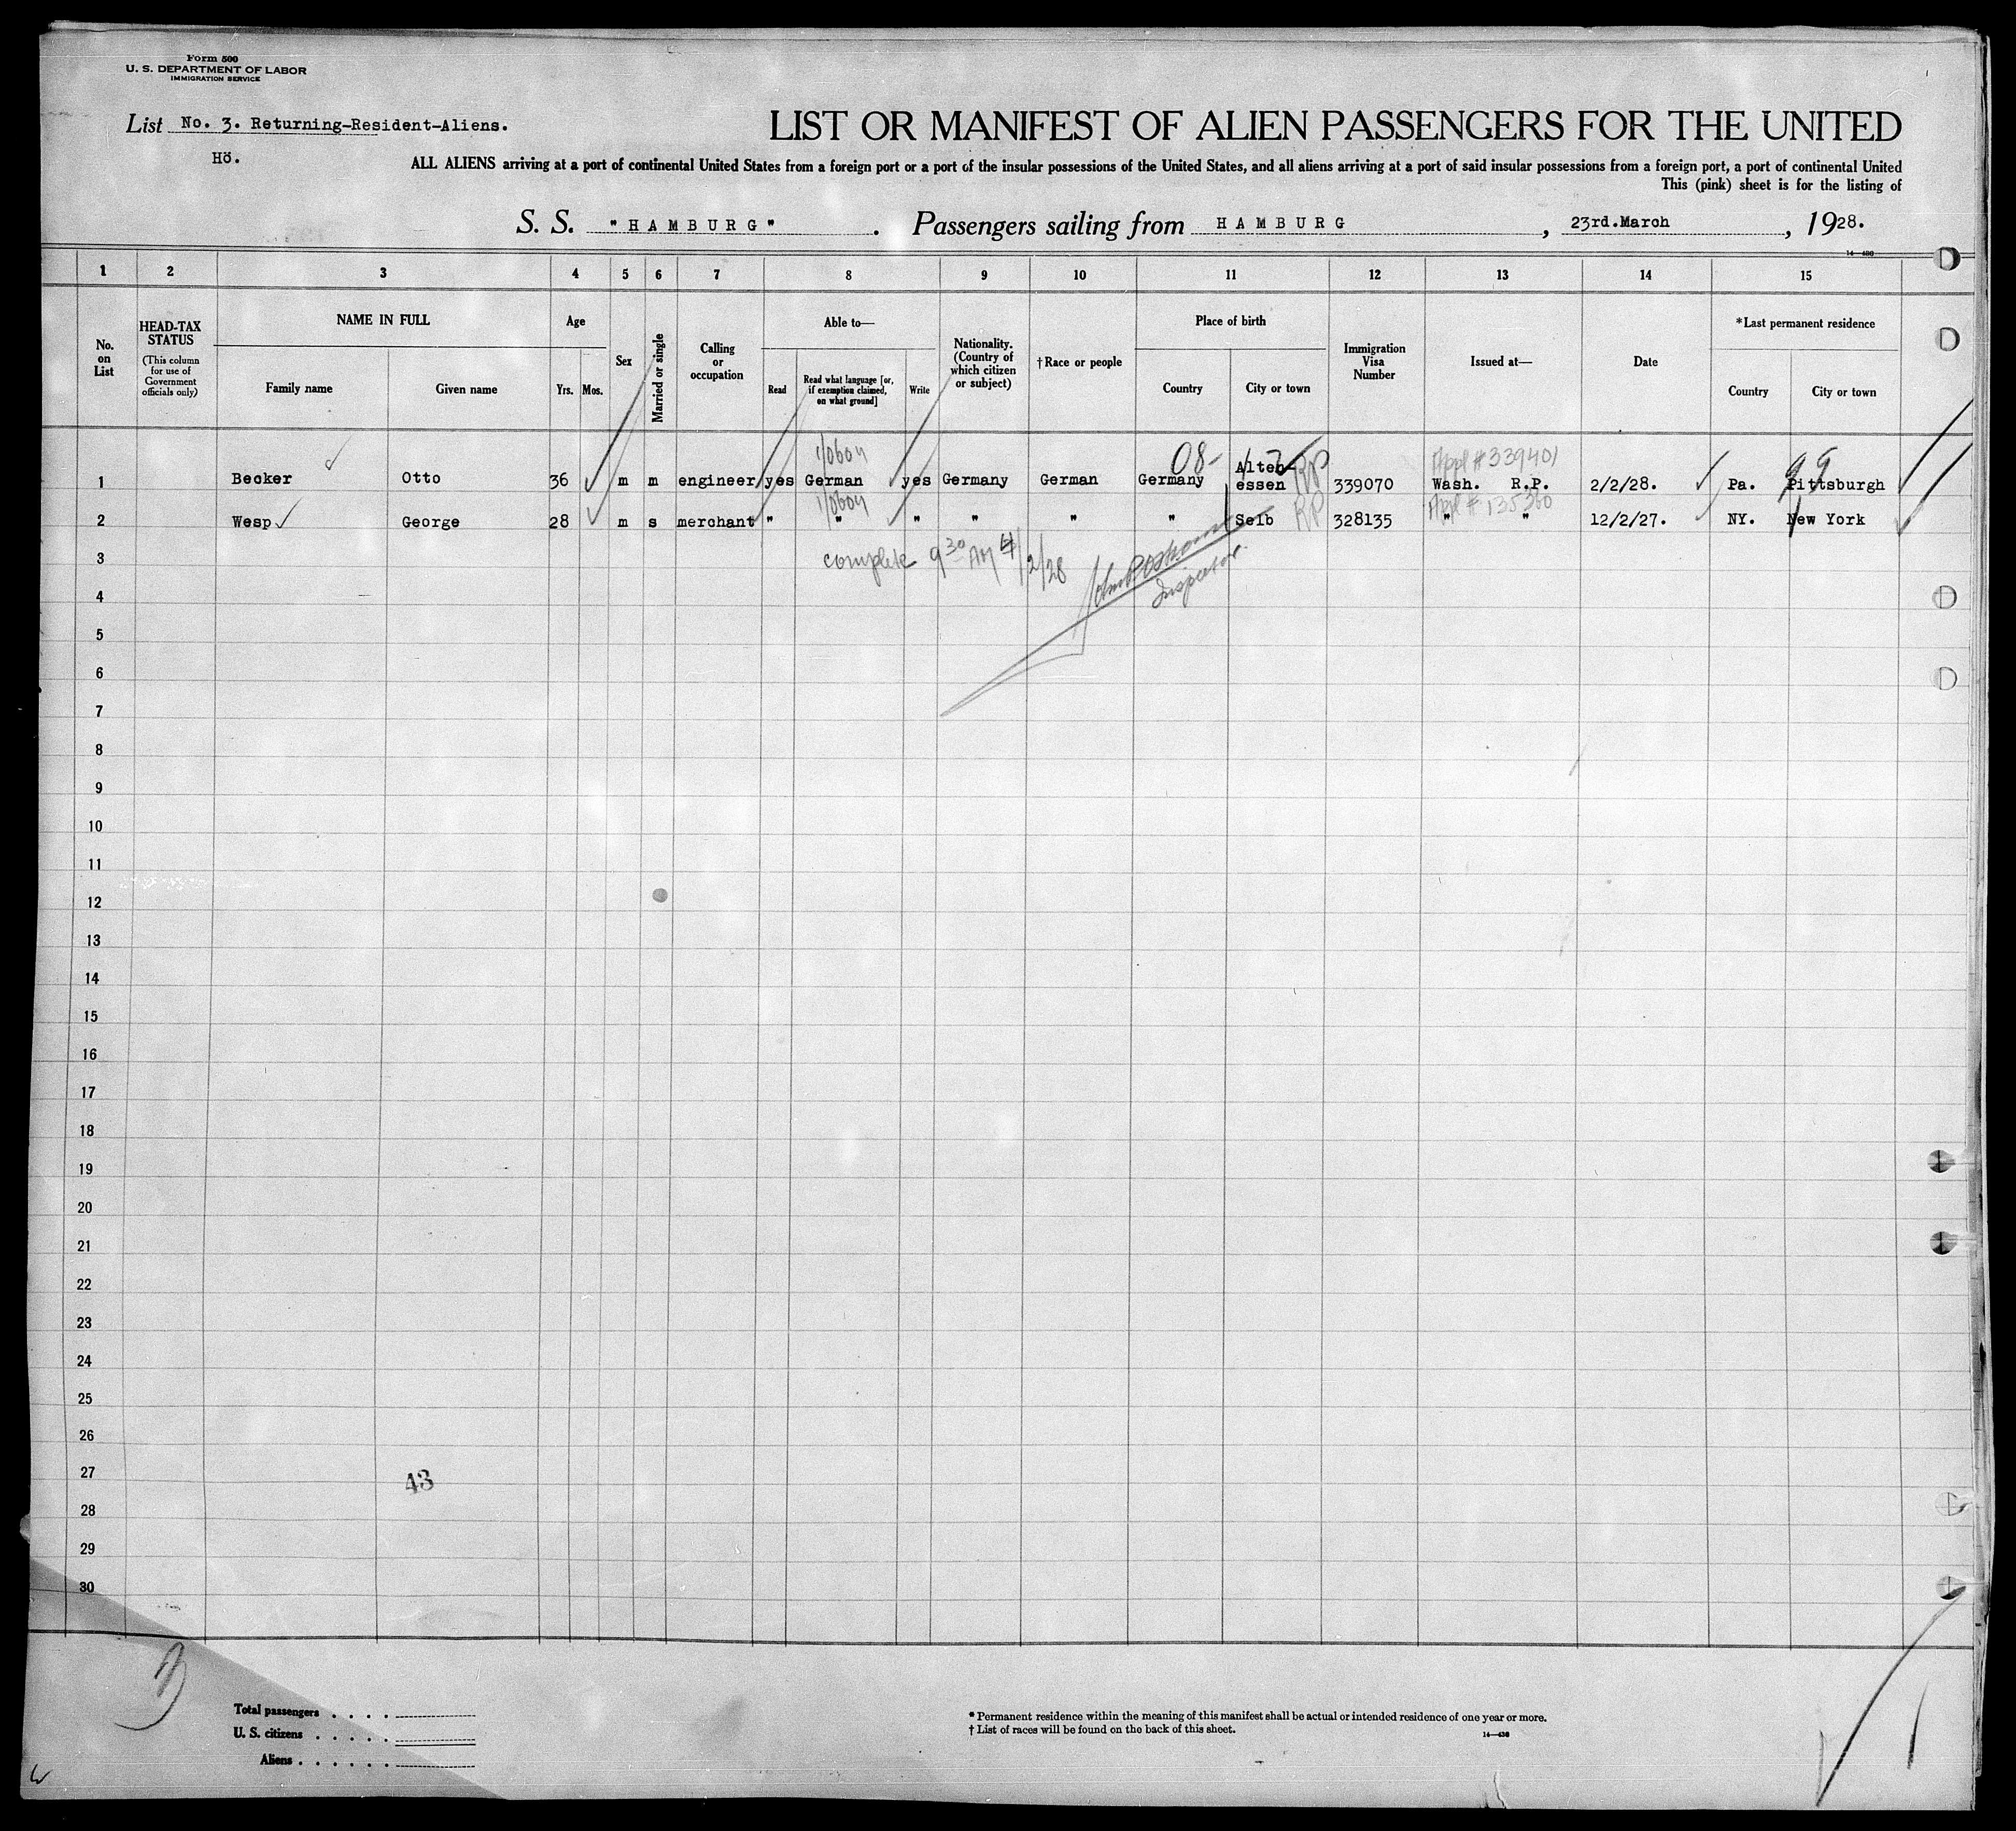 Form 500
U. S. DEPARTMENT OF LABOR
IMMIGRATION SERVICE
List No. 3. Returning-Resident-Aliens.
Hö.
LIST OR MANIFEST OF ALIEN PASSENGERS FOR THE UNITED
ALL ALIENS arriving at a port of continental United States from a foreign port or a port of the insular possessions of the United States, and all aliens arriving at a port of said insular possessions from a foreign port, a port of continental United
This (pink) sheet is for the listing of
S. S. "HAMBURG". Passengers sailing from HAMBURG, 23rd.March, 1928.
1 2 3 4 5 6 7 8 9 10 11 12 13 14 15
No. on List
HEAD-TAX STATUS
(This column for use of Government officials only)
NAME IN FULL
Family name Given name
Age
Yrs. Mos.
Sex
Married or single
Calling or occupation
Able to—
Read
Read what language [or, if exemption claimed, on what ground]
Write
Nationality. (Country of which citizen or subject)
†Race or people
Place of birth
Country City or town
Immigration Visa Number
Issued at—
Date
*Last permanent residence
Country City or town
08- RP Appl #339401 99
1 Becker Otto 36 m m engineer yes German yes Germany German Germany Alten-essen 339070 Wash. R.P. 2/2/28. Pa. Pittsburgh
RP Appl # 135360
2 Wesp George 28 m s merchant " " " " " " Selb 328135 " " 12/2/27. NY. New York
3 complete 9 30 AM 4/2/28
Inspector.
4
5
6
7
8
9
10
11
12
13
14
15
16
17
18
19
20
21
22
23
24
25
26
27
43
28
29
30
3
Total passengers . . . .
U. S. citizens . . . . .
Aliens . . . . . .
* Permanent residence within the meaning of this manifest shall be actual or intended residence of one year or more.
† List of races will be found on the back of this sheet.
14—430